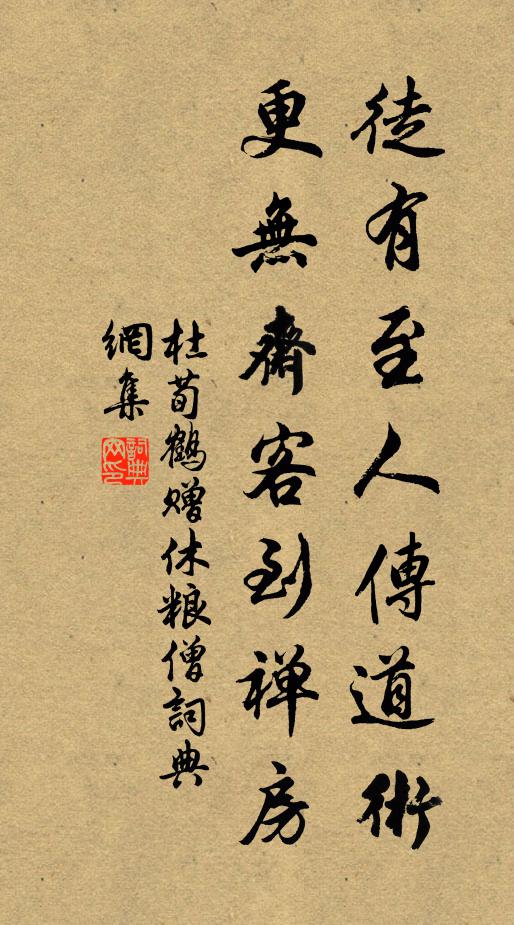 徒有至人傳道術
更無齋客到禅房
杜荀鶴赠休粮僧詞典
網集
詞典
网印